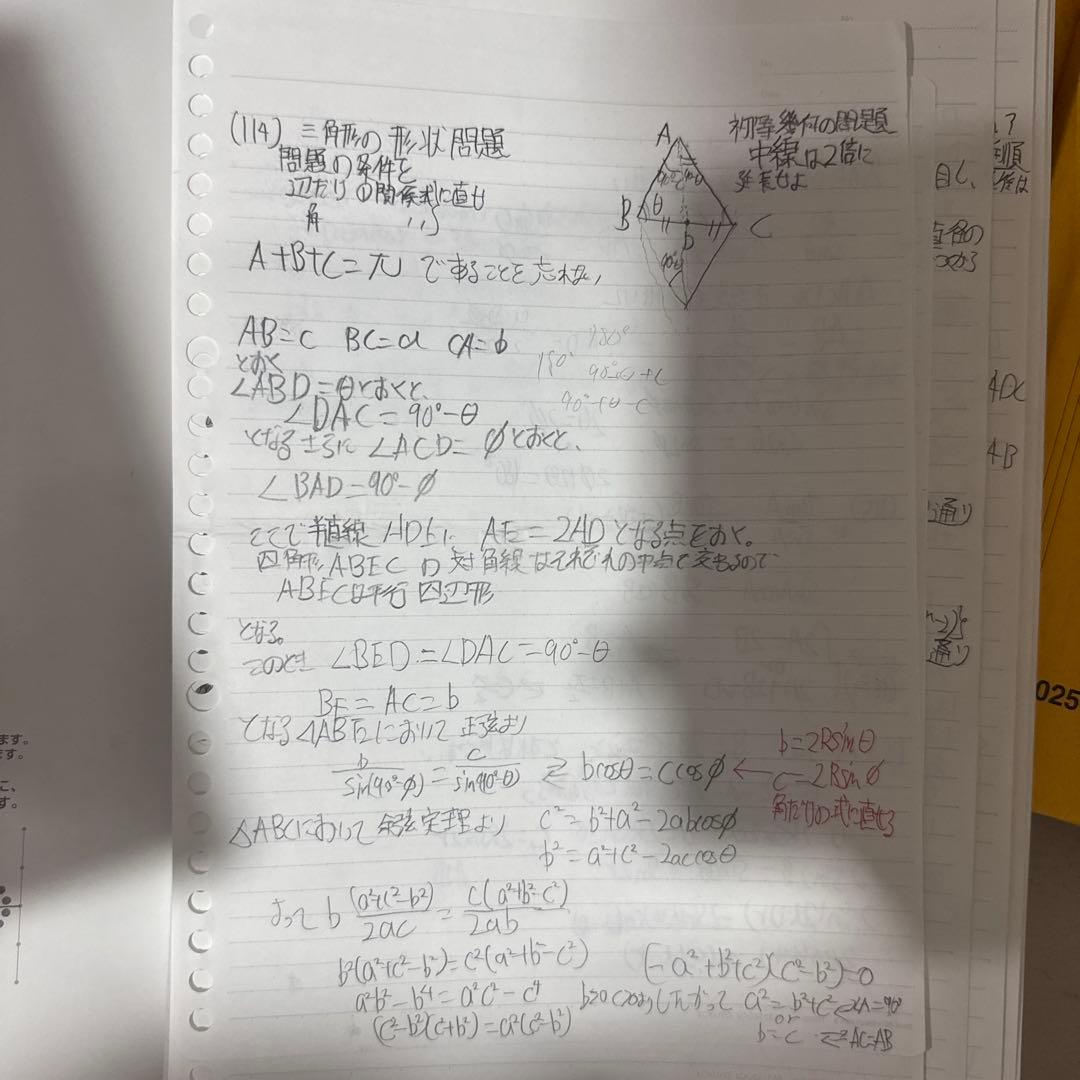 (114) 三角形の形状問題
問題の条件を
辺だけの関係式に直せ
角 〃
A+B+C=π であることを忘れない
初等幾何の問題
中線は2倍に
延長せよ
A
B
θ
C
D
AB=c BC=a CA=b
とおく
∠ABD=θとおくと、
∠DAC=90°-θ
となる さらに ∠ACD=φとおくと、
∠BAD=90°-φ
180°
ここで半直線AD上に AE=2ADとなる点をおく。
四角形ABECの対角線はそれぞれの中点で交わるので
ABECは平行四辺形
となる。
このとき ∠BED=∠DAC=90°-θ
BE=AC=b
となる △ABEにおいて 正弦より
b/sin(90°-φ)=c/sin(90°-θ) ⇄ bcosθ=ccosφ ←
b=2Rsinθ
c=2Rsinφ
角だけの式に直せる
△ABCにおいて 余弦定理より c²=b²+a²-2abcosφ
b²=a²+c²-2accosθ
よって b(a²+c²-b²)/2ac=c(a²+b²-c²)/2ab
b²(a²+c²-b²)=c²(a²+b²-c²)
a²b²-b⁴=a²c²-c⁴
(c²-b²)(c²+b²)=a²(c²-b²)
(-a²+b²+c²)(c²-b²)=0
b>0 c>0より したがって a²=b²+c² ⇄∠A=90°
or
b=c ⇄AC=AB
目し、
直角の
ADC
AB
通り
通り
025
ます。
ます。
に、
す。